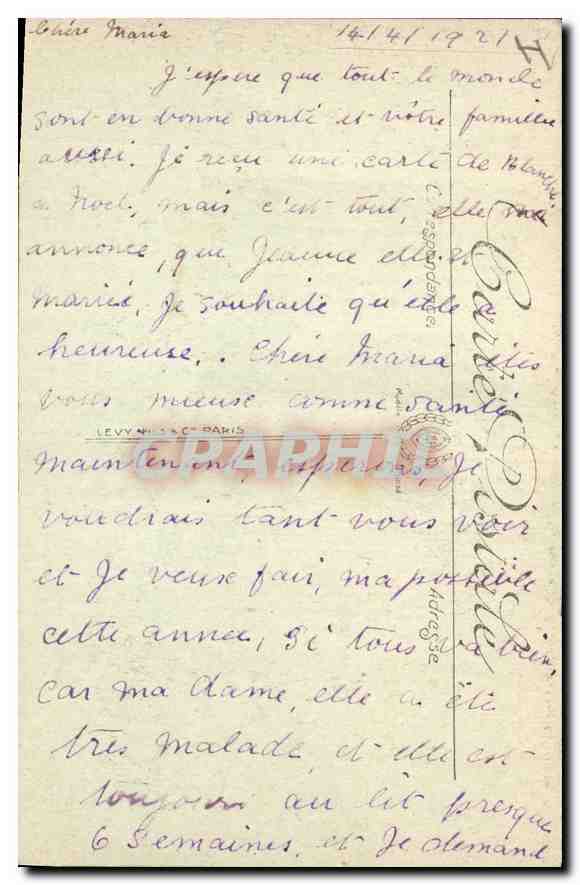 Chére Maria
14/4/1921 I
J'espere que tout le monde
sont en bonne santé et vôtre famille
aussi. Je reçu une carte de Blanche
a Noel, mais c'est tout, elle me
annonce, que Jeanne elle et
Mariée, Je souhaite qu'elle a
heureuse.. Chére Maria êtes
vous mieuse comme santé
maintenant, esperons, Je
voudrais tant vous voir
et Je veux fair, ma possible
cette annee, si tous va bien,
car ma dame, elle a été
trés malade, et elle est
toujours au lit presque
6 semaines, et Je demand
Carte Postale
Correspondance
Adresse
LEVY FILS & Cie PARIS
CRAPHIL